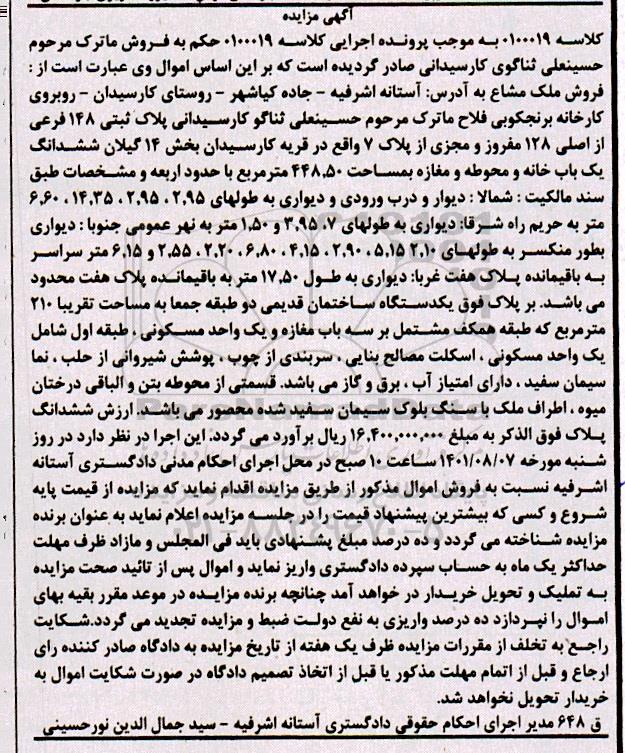 آگهی مزایده
کلاسه ۰۱۰۰۰۱۹ به موجب پرونده اجرایی کلاسه ۰۱۰۰۰۱۹ حکم به فروش ماترک مرحوم
حسینعلی ثناگوی کارسیدانی صادر گردیده است که بر این اساس اموال وی عبارت است از :
فروش ملک مشاع به آدرس: آستانه اشرفیه - جاده کیاشهر - روستای کارسیدان - روبروی
کارخانه برنجکوبی فلاح ماترک مرحوم حسینعلی ثناگو کارسیدانی پلاک ثبتی ۱۴۸ فرعی
از اصلی ۱۲۸ مفروز و مجزی از پلاک ۷ واقع در قریه کارسیدان بخش ۱۴ گیلان ششدانگ
یک باب خانه و محوطه و مغازه بمساحت ۴۴۸,۵۰ مترمربع با حدود اربعه و مشخصات طبق
سند مالکیت : شمالا : دیوار و درب ورودی و دیواری به طولهای ۲,۹۵ ، ۲,۹۵ ، ۱۴,۳۵ ، ۶,۶۰
متر به حریم راه شرقا: دیواری به طولهای ۷، ۳,۹۵ و ۱,۵۰ متر به نهر عمومی جنوبا : دیواری
بطور منکسر به طولهای ۲,۱۰ ، ۵,۱۵ ، ۲,۹۰ ، ۴,۱۵ ، ۶,۸۰ ، ۲,۲۰ ، ۲,۵۵ و ۶,۱۵ متر سراسر
به باقیمانده پلاک هفت غربا: دیواری به طول ۱۷,۵۰ متر به باقیمانده پلاک هفت محدود
می باشد. بر پلاک فوق یکدستگاه ساختمان قدیمی دو طبقه جمعا به مساحت تقریبا ۲۱۰
مترمربع که طبقه همکف مشتمل بر سه باب مغازه و یک واحد مسکونی ، طبقه اول شامل
یک واحد مسکونی ، اسکلت مصالح بنایی ، سربندی از چوب ، پوشش شیروانی از حلب ، نما
سیمان سفید ، دارای امتیاز آب ، برق و گاز می باشد. قسمتی از محوطه بتن و الباقی درختان
میوه ، اطراف ملک با سنگ بلوک سیمان سفید شده محصور می باشد. ارزش ششدانگ
پلاک فوق الذکر به مبلغ ۱۶,۴۰۰,۰۰۰,۰۰۰ ریال برآورد می گردد. این اجرا در نظر دارد در روز
شنبه مورخه ۱۴۰۱/۰۸/۰۷ ساعت ۱۰ صبح در محل اجرای احکام مدنی دادگستری آستانه
اشرفیه نسبت به فروش اموال مذکور از طریق مزایده اقدام نماید که مزایده از قیمت پایه
شروع و کسی که بیشترین پیشنهاد قیمت را در جلسه مزایده اعلام نماید به عنوان برنده
مزایده شناخته می گردد و ده درصد مبلغ پشنهادی باید فی المجلس و مازاد ظرف مهلت
حداکثر یک ماه به حساب سپرده دادگستری واریز نماید و اموال پس از تائید صحت مزایده
به تملیک و تحویل خریدار در خواهد آمد چنانچه برنده مزایده در موعد مقرر بقیه بهای
اموال را نپردازد ده درصد واریزی به نفع دولت ضبط و مزایده تجدید می گردد.شکایت
راجع به تخلف از مقررات مزایده ظرف یک هفته از تاریخ مزایده به دادگاه صادر کننده رای
ارجاع و قبل از اتمام مهلت مذکور یا قبل از اتخاذ تصمیم دادگاه در صورت شکایت اموال به
خریدار تحویل نخواهد شد.
ق ۶۴۸ مدیر اجرای احکام حقوقی دادگستری آستانه اشرفیه - سید جمال الدین نورحسینی